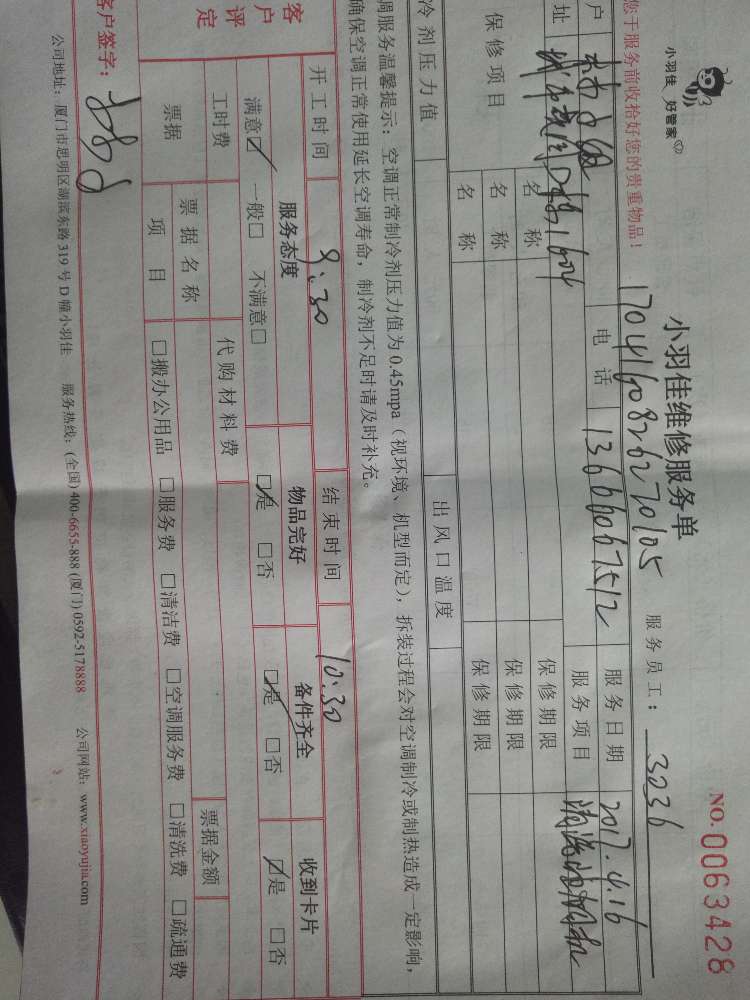 小羽佳 好管家
小羽佳维修服务单
NO. 0063428
1704160826270105
服务员工: 3036
您于服务前收拾好您的贵重物品!
户
电话 13666067512 服务日期 2017.4.16
址 1604 服务项目
保修项目 名称 保修期限
名称 保修期限
名称 保修期限
冷剂压力值 出风口温度
调服务温馨提示: 空调正常制冷剂压力值为 0.45mpa (视环境、机型而定), 拆装过程会对空调制冷或制热造成一定影响,
确保空调正常使用延长空调寿命, 制冷剂不足时请及时补充。
开工时间 9:30 结束时间 10:30
客户评定 服务态度 物品完好 备件齐全 收到卡片
满意☑ 一般□ 不满意□ ☑是 □否 ☑是 □否 ☑是 □否
工时费 代购材料费
票据 票据名称 票据金额
项目 □搬办公用品 □服务费 □清洁费 □空调服务费 □清洗费 □疏通费
客户签字:
公司地址: 厦门市思明区湖滨东路 319 号 D 幢小羽佳 服务热线: (全国) 400-6655-888 (厦门) 0592-5178888 公司网站: www.xiaoyujia.com